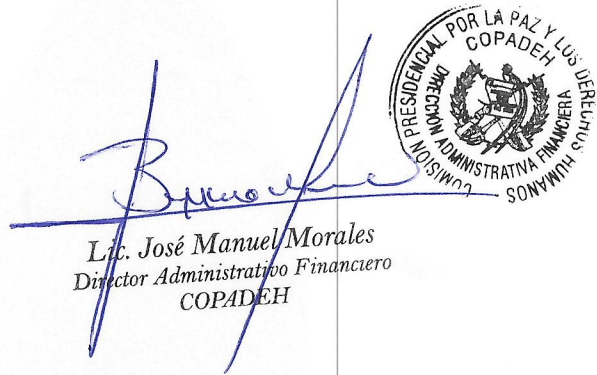 COMISIÓN PRESIDENCIAL POR LA PAZ Y LOS DERECHOS HUMANOS
COPADEH
DIRECCIÓN ADMINISTRATIVA FINANCIERA
Lic. José Manuel Morales
Director Administrativo Financiero
COPADEH